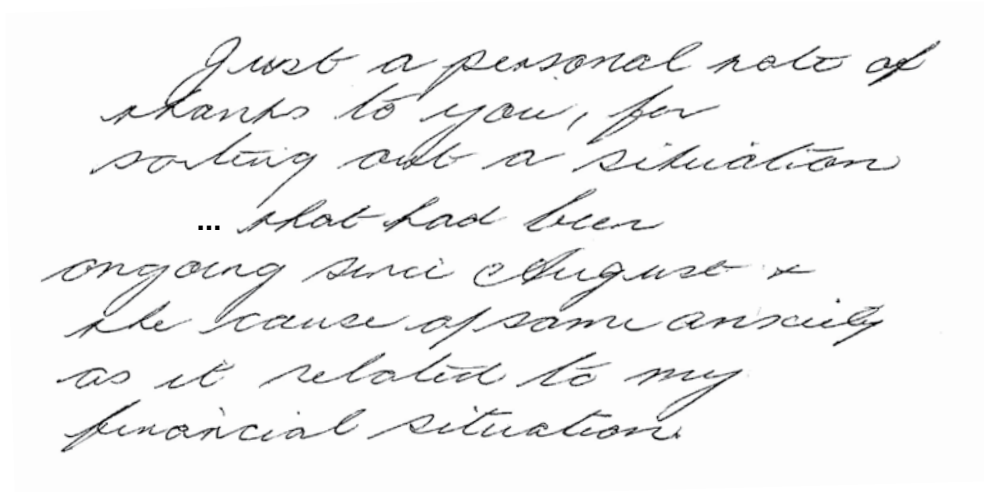 Just a personal note of
thanks to you, for
sorting out a situation
... that had been
ongoing since August &
the cause of some anxiety
as it related to my
financial situation.